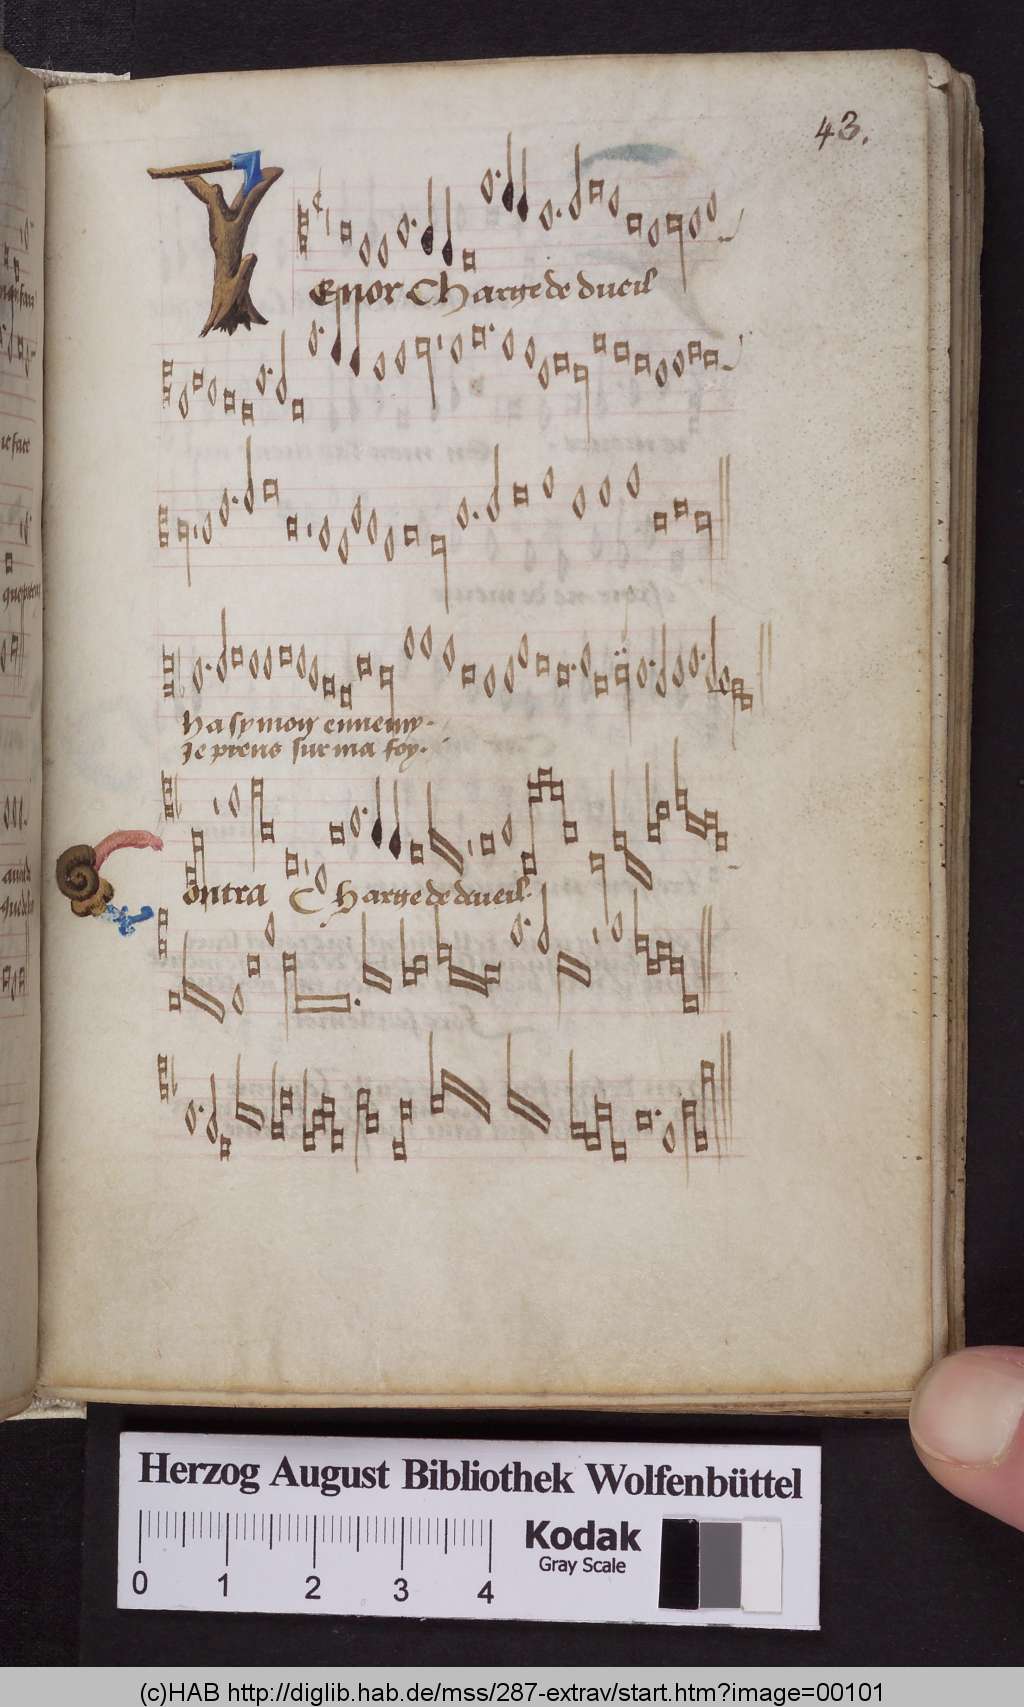 43.
Tenor Charge de dueil
Ha sy mon ennemy.
Je prens sur ma foy.
Contra Charge de dueil.
Herzog August Bibliothek Wolfenbüttel
0 1 2 3 4
Kodak
Gray Scale
(c)HAB http://diglib.hab.de/mss/287-extrav/start.htm?image=00101